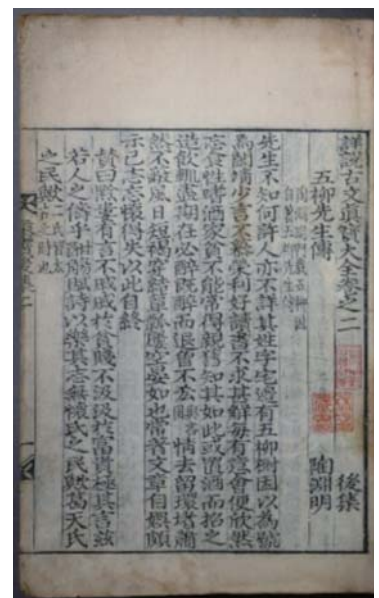 詳說古文真寶大全卷之二
後集
五柳先生傳
陶淵明
先生不知何許人亦不詳其姓字宅邊有五柳樹因以為號
焉閑靖少言不慕榮利好讀書不求甚解每有意會便欣然
忘食性嗜酒家貧不能常得親舊知其如此或置酒而招之
造飲輒盡期在必醉既醉而退曾不吝情去留環堵蕭
然不蔽風日短褐穿結簞瓢屢空晏如也常著文章自娛頗
示己志忘懷得失以此自終
贊曰黔婁有言不戚戚於貧賤不汲汲於富貴極其言茲
若人之儔乎酣觴賦詩以樂其志無懷氏之民歟葛天氏
之民歟